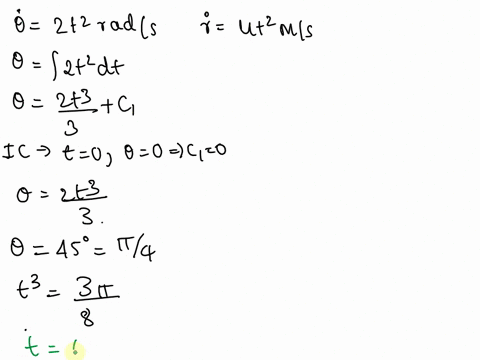 θ̇ = 2t² rad/s   ṙ = 4t² m/s
θ = ∫2t²dt
θ = 2t3/3 + C₁
IC → t=0, θ=0 => C₁=0
θ = 2t3/3.
θ = 45° = π/4
t³ = 3π/8
t =